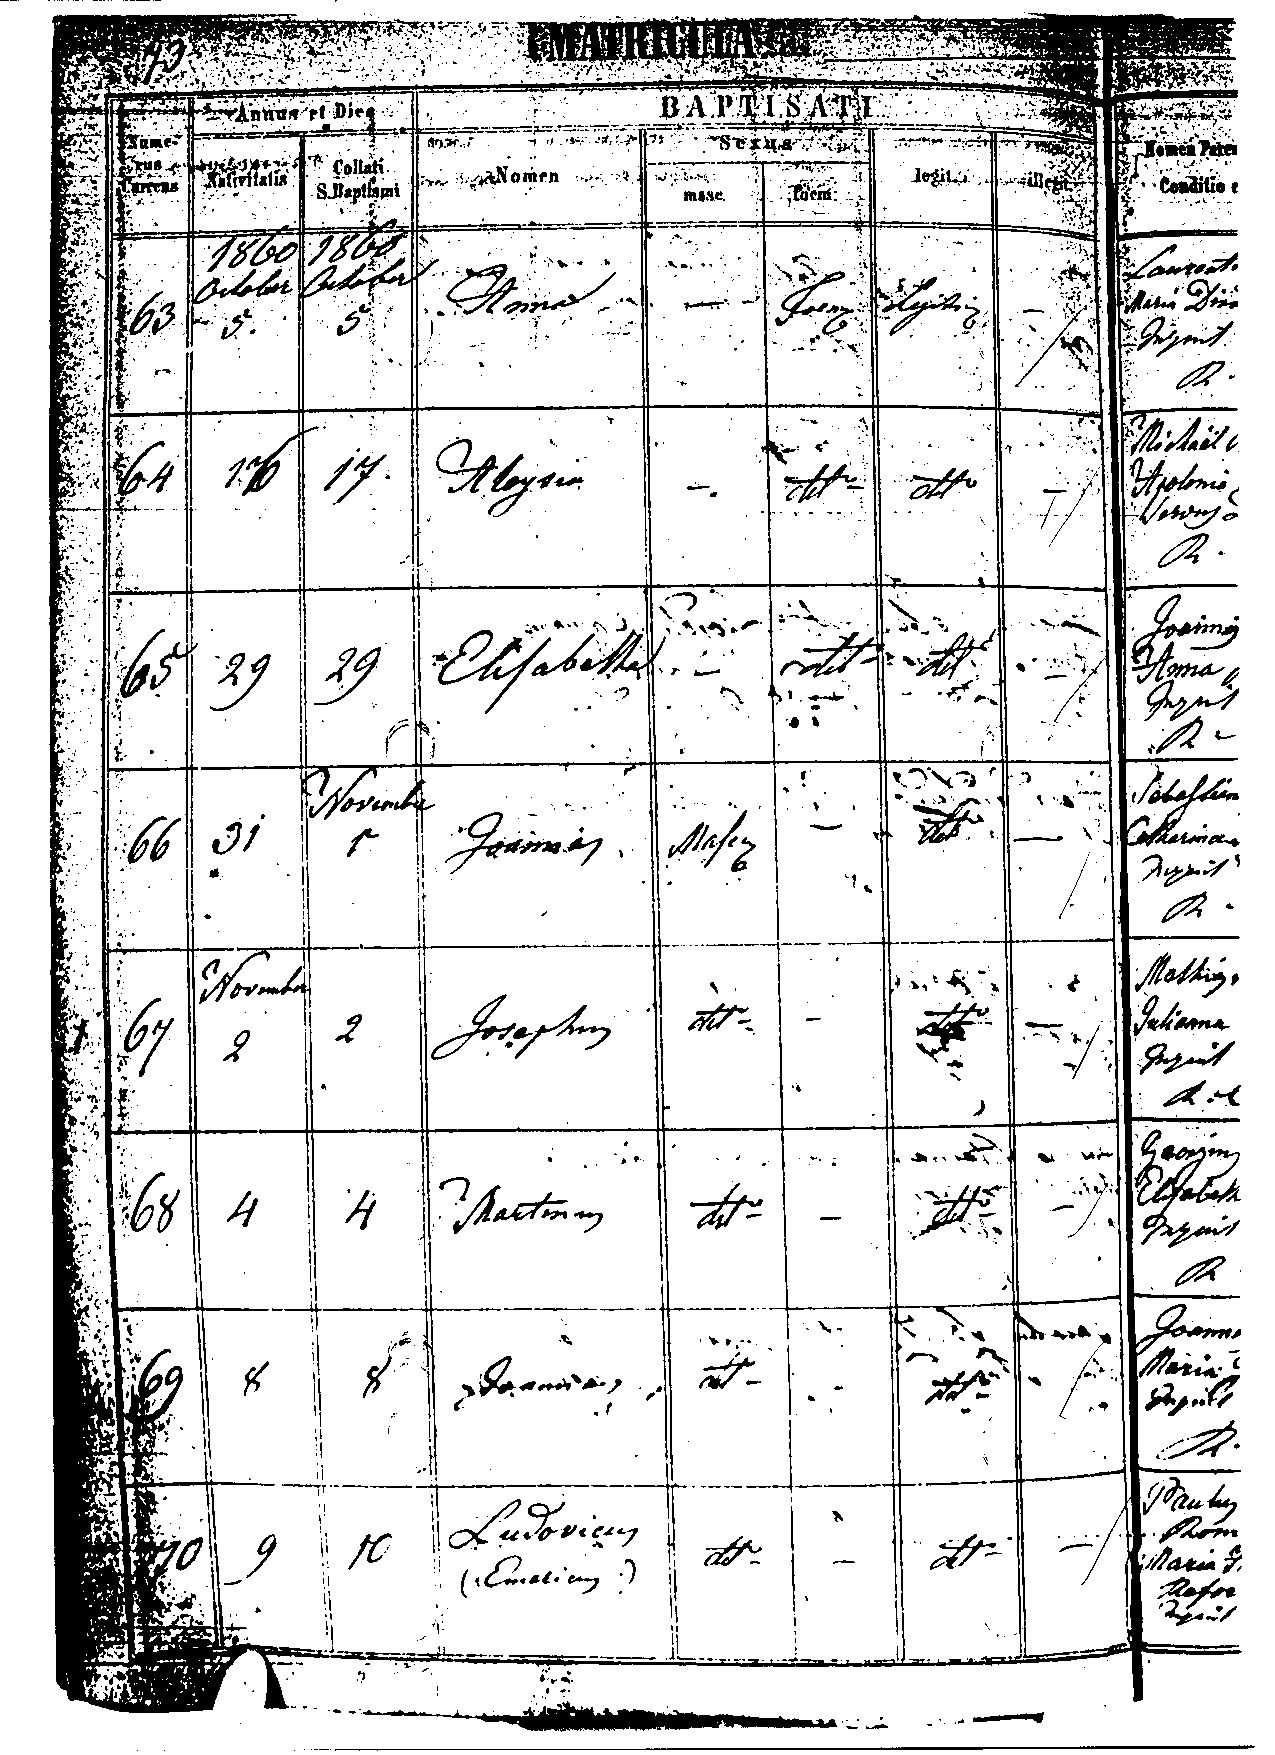 73
MATRICULA
Annus et Dies
BAPTISATI
Nume-
rus
Currens
Nativitatis
Collati
S. Baptismi
Nomen
Sexus
masc.
foem.
legit.
illegit.
Nomen Paren
Conditio e
1860 1860
October October
63 5. 5 Anna — Foem Legitim —
Laurent
Maria
Inquil
R.
64 16 17. Aloysia — dtto dtto —
Michaël
Apolonia
R.
65 29 29 Elisabetha — dtto dtto —
Joannes
Anna
Inquil
R
Novembr
66 31 1 Joannes Masc — dtto —
Sebastian
Catharina
Inquil
R.
November
67 2 2 Josephus dtto — dtto —
Mathias
Julianna
Inquil
R.
68 4 4 Martinus dtto — dtto —
Georgius
Elisabeth
Inquil
R
69 8 8 Joannes dtto — dtto —
Joannes
Maria
Inquil
R.
70 9 10 Ludovicus dtto — dtto —
(: Emericus :)
Paulus
Rom
Maria
Inquil